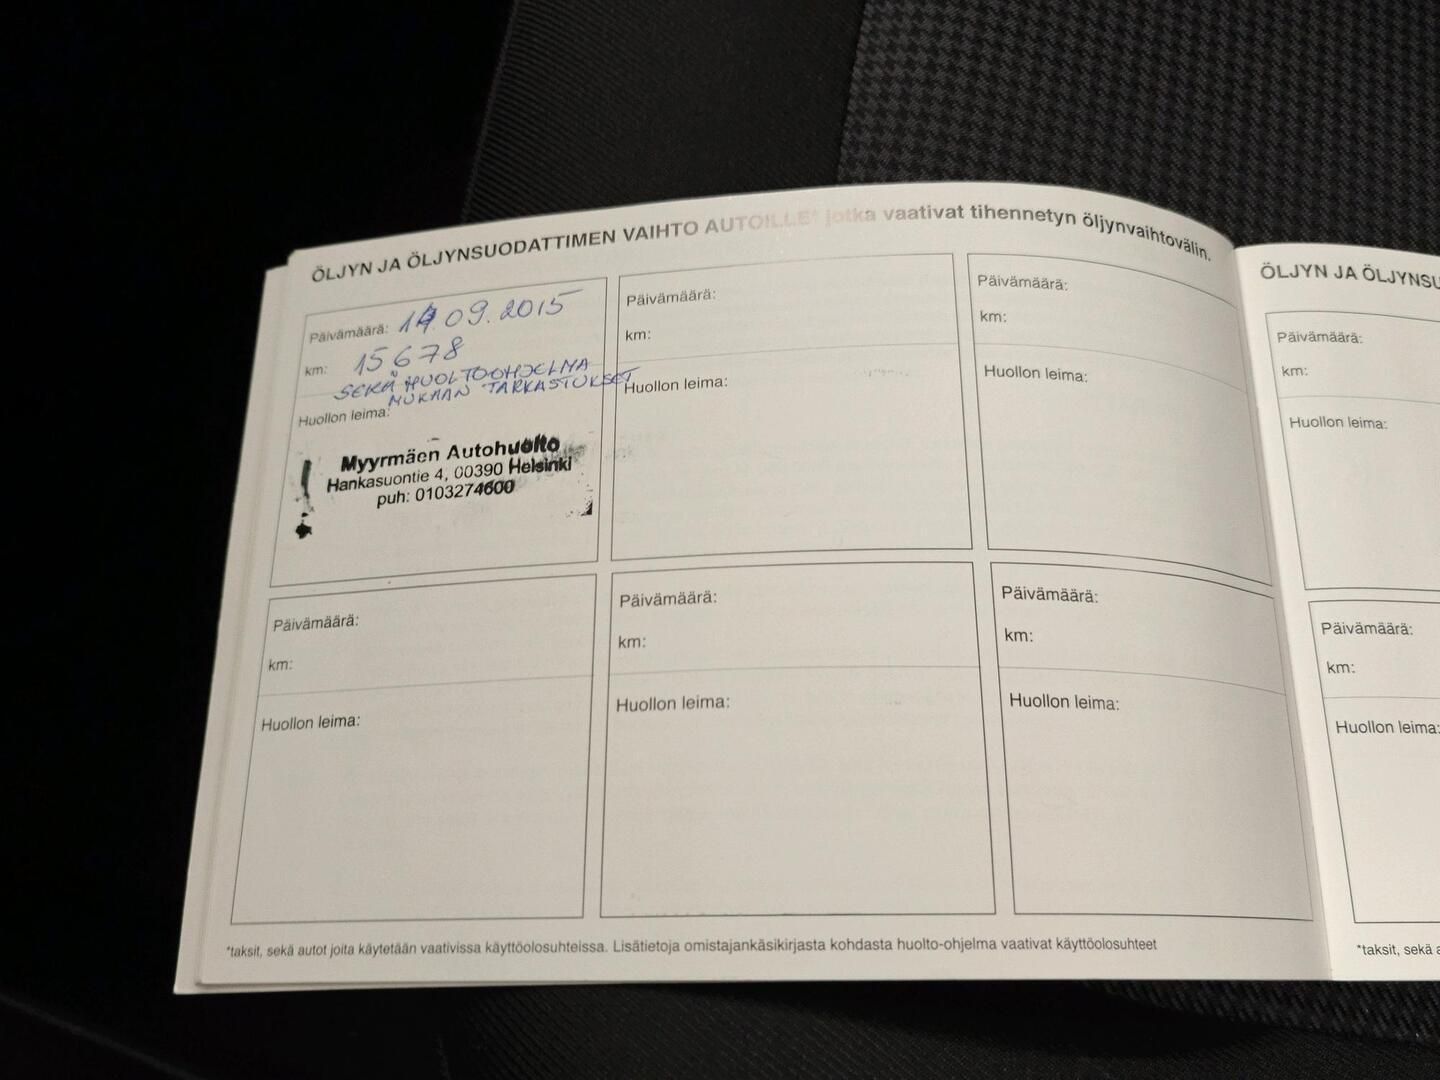 ÖLJYN JA ÖLJYNSUODATTIMEN VAIHTO AUTOILLE* jotka vaativat tihennetyn öljynvaihtovälin.
Päivämäärä: 14.09.2015
km: 15678
SEKÄ HUOLTOOHJELMA
MUKAAN TARKASTUKSET
Huollon leima:
Myyrmäen Autohuolto
Hankasuontie 4, 00390 Helsinki
puh: 0103274600
Päivämäärä:
km:
Huollon leima:
Päivämäärä:
km:
Huollon leima:
Päivämäärä:
km:
Huollon leima:
Päivämäärä:
km:
Huollon leima:
Päivämäärä:
km:
Huollon leima:
*taksit, sekä autot joita käytetään vaativissa käyttöolosuhteissa. Lisätietoja omistajankäsikirjasta kohdasta huolto-ohjelma vaativat käyttöolosuhteet
ÖLJYN JA ÖLJYNSU
Päivämäärä:
km:
Huollon leima:
Päivämäärä:
km:
Huollon leima:
*taksit, sekä a